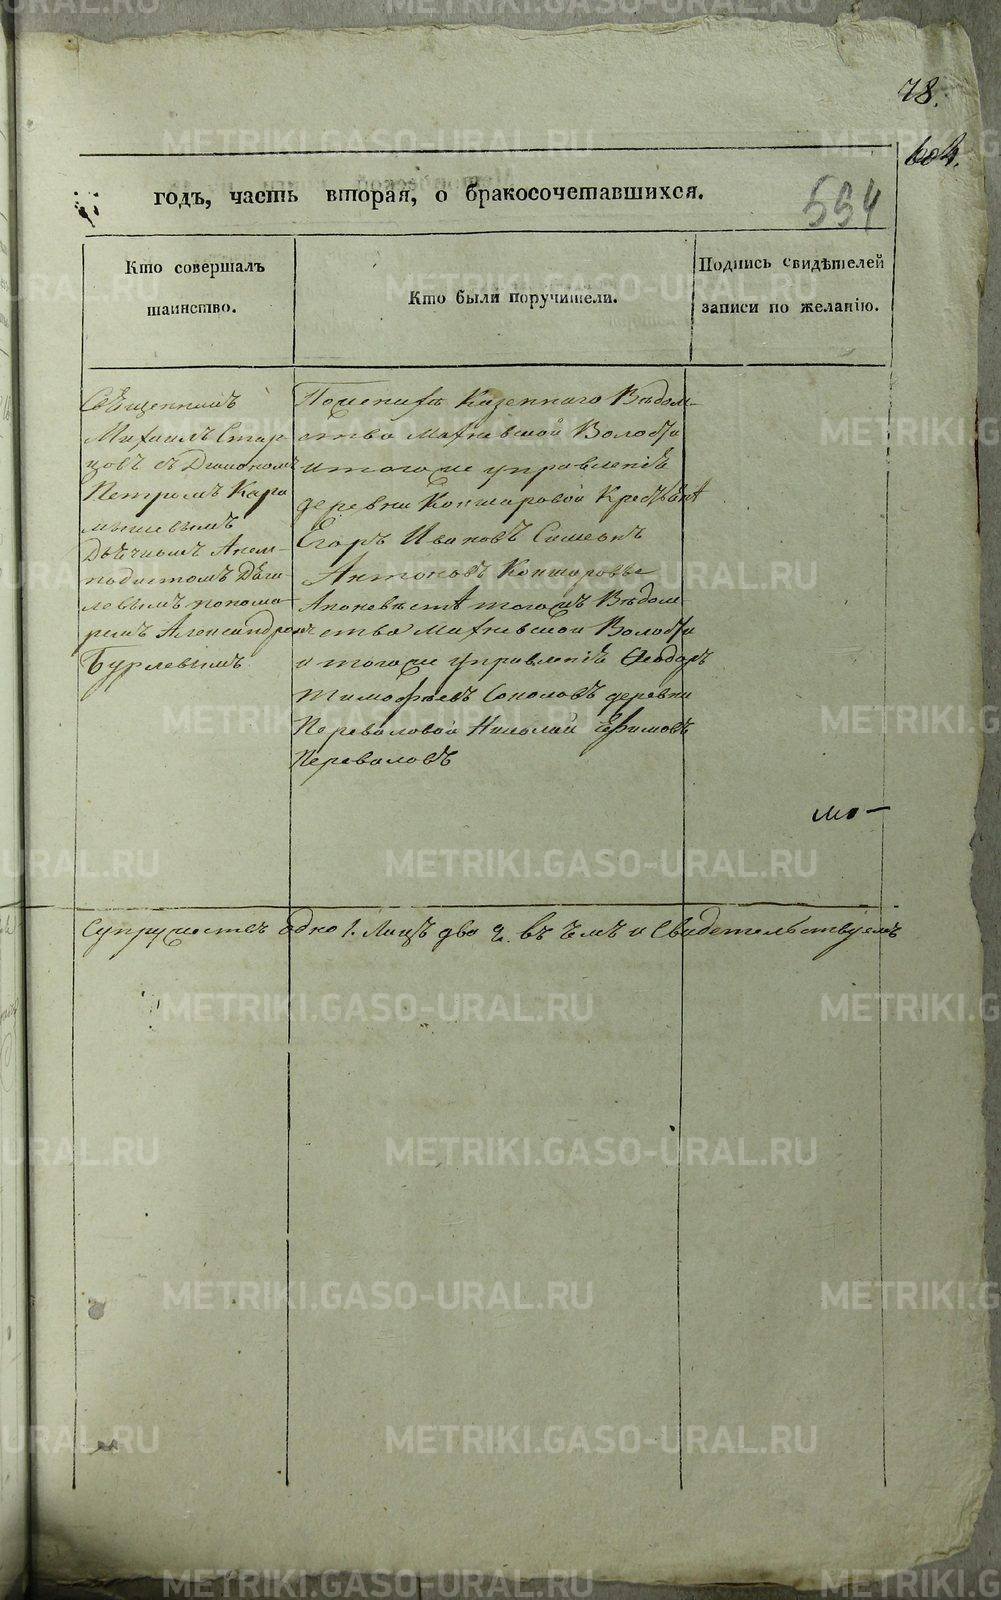 78.
604.
годъ, часть вторая, о бракосочетавшихся.
534
Кто совершалъ
таинство.
Кто были поручители.
Подпись свидѣтелей
записи по желанію.
Священникъ
Михаилъ Стар-
цовъ съ Диакономъ
Петромъ Кара
мышевымъ
Дьячкомъ Анем-
подистомъ Дѣги-
левымъ понома-
ремъ Александромъ
Бурлевымъ
По женихѣ Казеннаго Вѣдом-
ства Матневской Волости
и того же управленіѣ
деревни Кокшаровой Крестьянѣ
Егоръ Ивановъ Симеонъ
Антоновъ Кокшаровы
А по невѣстѣ того жъ Вѣдом-
ства Матневской Волости
и того же управленіѣ Ѳеодоръ
Тимофѣевъ Соколовъ деревни
Переваловой Николай Ефимовъ
Переваловъ
мо-
Супружествъ одно 1. Лицъ два 2. въ чемъ и Свидетельствуемъ
METRIKI.GASO-URAL.RU